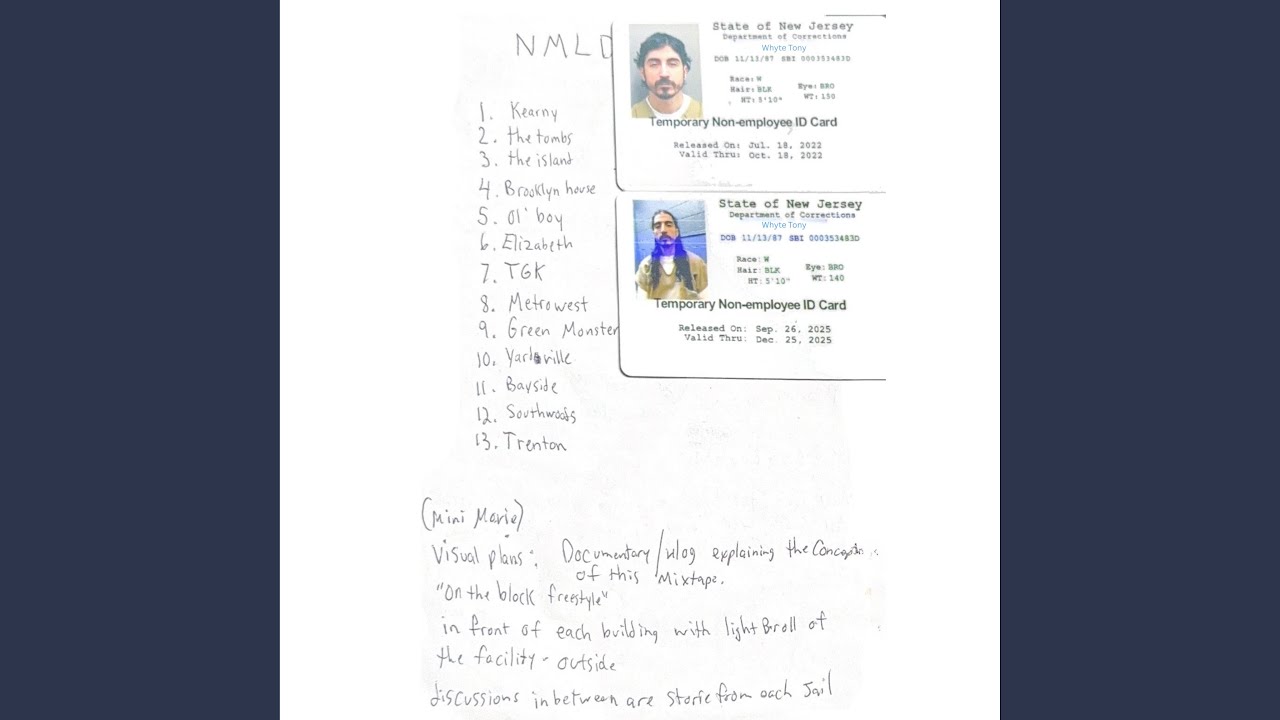 NMLD
1. Kearny
2. the tombs
3. the island
4. Brooklyn house
5. Ol' boy
6. Elizabeth
7. TGK
8. Metrowest
9. Green Monster
10. Yardville
11. Bayside
12. Southwoods
13. Trenton
State of New Jersey
Department of Corrections
Whyte Tony
DOB 11/13/87 SBI 000353483D
Race: W
Hair: BLK Eye: BRO
HT: 5'10" WT: 150
Temporary Non-employee ID Card
Released On: Jul. 18, 2022
Valid Thru: Oct. 18, 2022
State of New Jersey
Department of Corrections
Whyte Tony
DOB 11/13/87 SBI 000353483D
Race: W
Hair: BLK Eye: BRO
HT: 5'10" WT: 140
Temporary Non-employee ID Card
Released On: Sep. 26, 2025
Valid Thru: Dec. 25, 2025
(Mini Movie)
Visual plans: Documentary/vlog explaining the
of this Mixtape.
"On the block freestyle"
in front of each building with light Broll of
the facility - outside
discussions inbetween are storie from each Jail